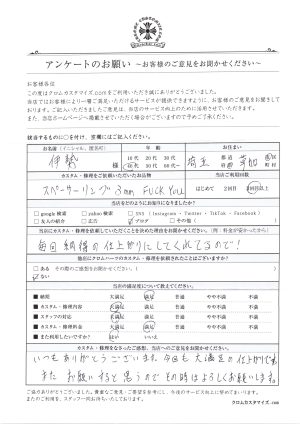 アンケートのお願い ～お客様のご意見をお聞かせください～
お客様各位
この度はクロムカスタマイズ.comをご利用いただき誠にありがとうございました。
当店ではお客様により一層ご満足いただけるサービスが提供できますように、お客様のご意見をお聞きしております。
ご記入いただきましたご意見は、当店のサービス向上のために活用させていただきます。
また、当店ホームページへ掲載させていただく場合がございますので予めご了承ください。
該当するものに○を付け、空欄にはご記入ください。
お名前（イニシャル、匿名可） 年 齢 お住まい
伊勢 様
10代 20代 30代
40代 50代 60代
埼玉 都道府県 草加 市区町村
カスタム・修理をご依頼いただいたお品物 当店ご利用回数
スペーサーリング 3mm FUCK YOU はじめて 2回目 3回以上
当店をどのようにお知りになりましたか？
google検索 yahoo検索 SNS（Instagram・Twitter・TikTok・Facebook）
友人の紹介 広告 ブログ その他（ ）
当店にカスタム・修理を依頼していただくことを決めた理由をお聞かせください。（例：料金が安かったから）
毎回納得の仕上がりにしてくれてるので!
他店にクロムハーツのカスタム・修理を依頼されたことはございますか？
ある その際のご感想をお聞かせください。（ ）
ない
当店の満足度について教えてください。
■ 納期 大満足 満足 普通 やや不満 不満
■ カスタム・修理内容 大満足 満足 普通 やや不満 不満
■ スタッフの対応 大満足 満足 普通 やや不満 不満
■ カスタム・修理料金 大満足 満足 普通 やや不満 不満
■ また利用したいですか？ はい いいえ
カスタム・修理をなさったご感想、当店へのご意見をお聞かせください。
いつもありがとうございます。今回も大満足の仕上がりです。
また お願いすると思うので その時はよろしくお願いします。
ご協力ありがとうございました。貴重なご意見・ご要望を参考に、今後のサービス向上に努めてまいります。
またのご利用を、スタッフ一同お待ちいたしております。
クロムカスタマイズ.com